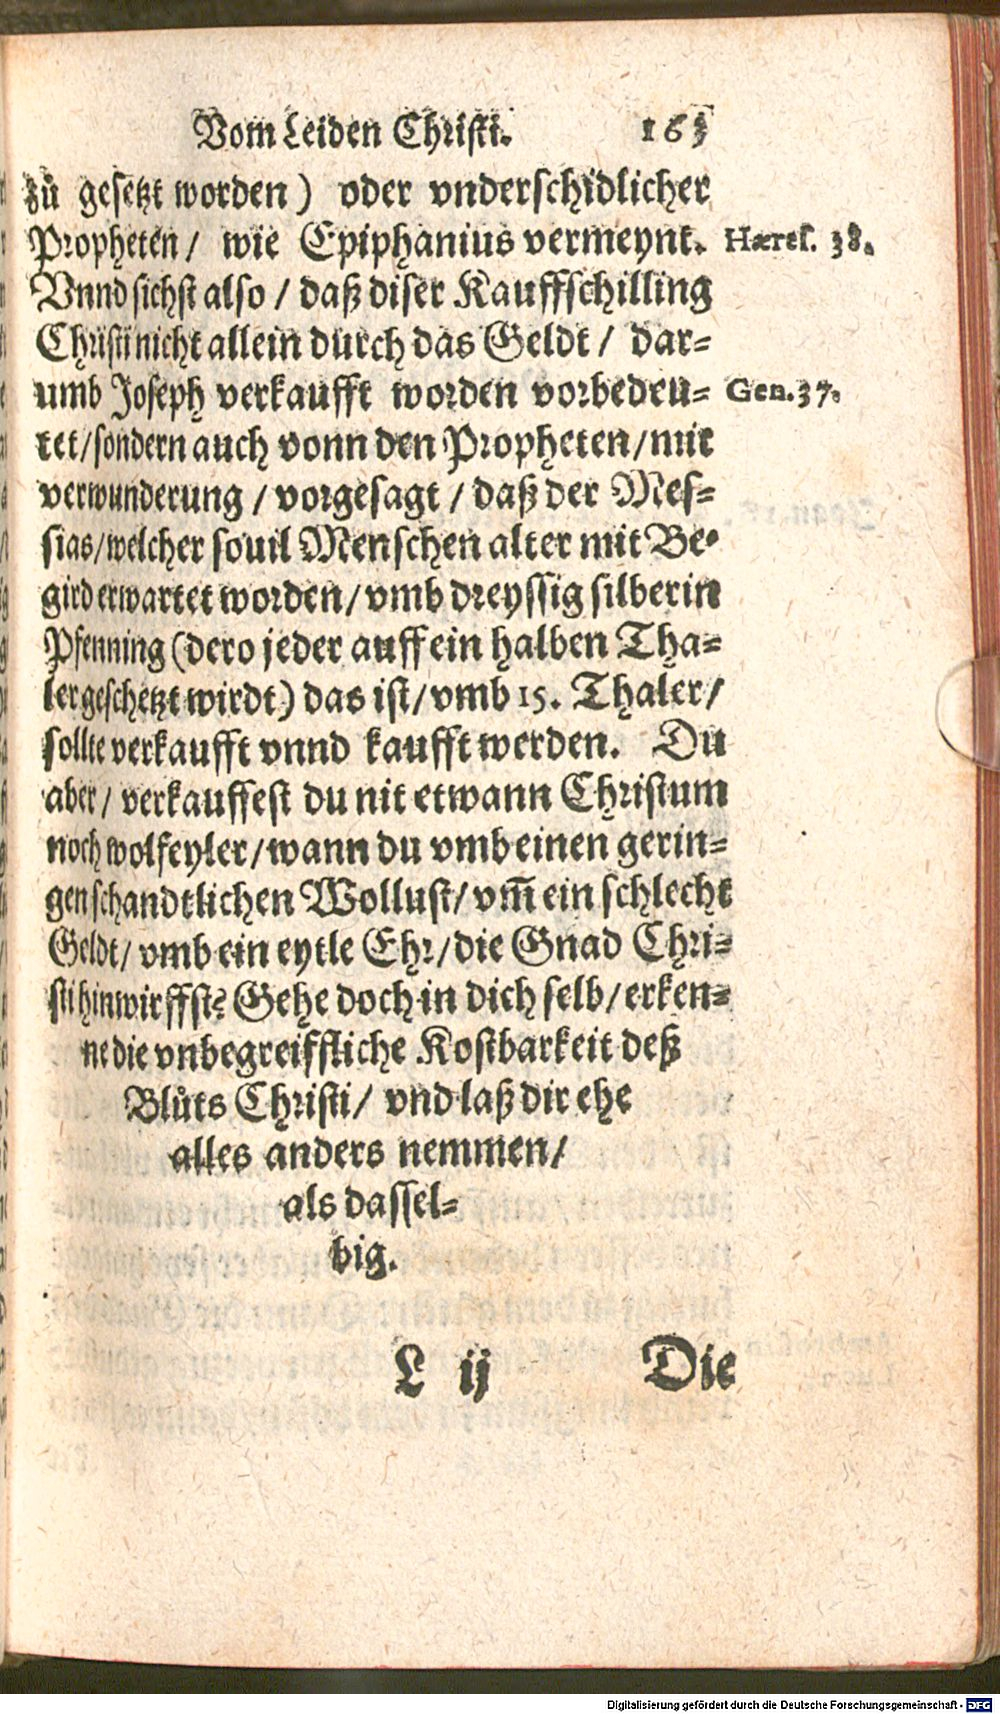 Vom Leiden Christi. 163
zů gesetzt worden) oder vnderschidlicher
Propheten/ wie Epiphanius vermeynt. Hæres. 38.
Vnnd sichst also/ daß diser Kauffschilling
Christi nicht allein durch das Geldt/ dar-
umb Joseph verkaufft worden vorbedeu- Gen. 37.
tet/ sondern auch vonn den Propheten/ mit
verwunderung/ vorgesagt/ daß der Mes-
sias/ welcher souil Menschen alter mit Be-
gird erwartet worden/ vmb dreyssig silberin
Pfenning (dero jeder auff ein halben Tha-
ler geschetzt wirdt) das ist/ vmb 15. Thaler/
sollte verkaufft vnnd kaufft werden. Du
aber/ verkauffest du nit etwann Christum
noch wolfeyler/ wann du vmb einen gerin-
gen schandtlichen Wollust/ vm̄ ein schlecht
Geldt/ vmb ein eytle Ehr/ die Gnad Chri-
sti hinwirffst? Gehe doch in dich selb/ erken-
ne die vnbegreiffliche Kostbarkeit deß
Blůts Christi/ vnd laß dir ehe
alles anders nemmen/
als dassel-
big.
L ij Die
Digitalisierung gefördert durch die Deutsche Forschungsgemeinschaft - DFG